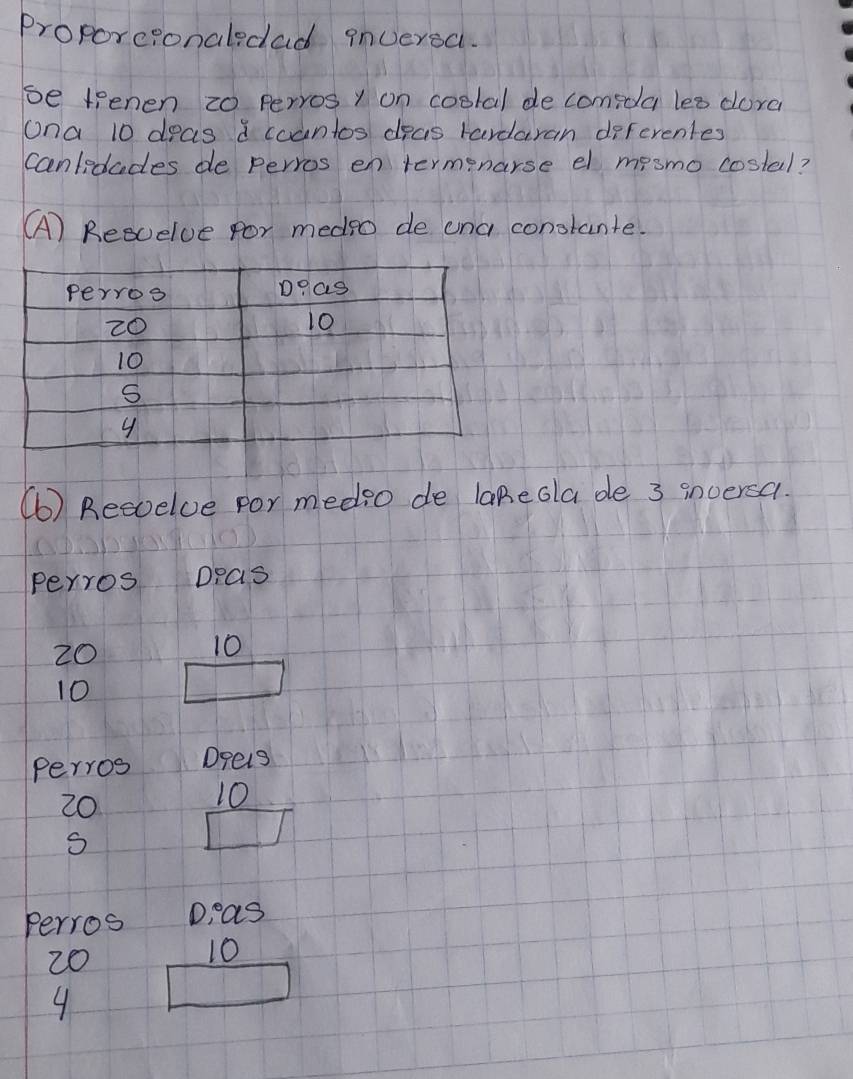 Proporcionalidad inversa.
se tienen 20 perros y un costal de comida les dura
una 10 dias ¿cuantos dias tardaran diferentes
cantidades de perros en terminarse el mismo costal?
(A) Resuelve por medio de una constante.
Perros Dias
20 10
10
5
4
(b) Resuelve por medio de la Regla de 3 inversa.
Perros Dias
20 10
10
Perros Dias
20 10
5
Perros Dias
20 10
4